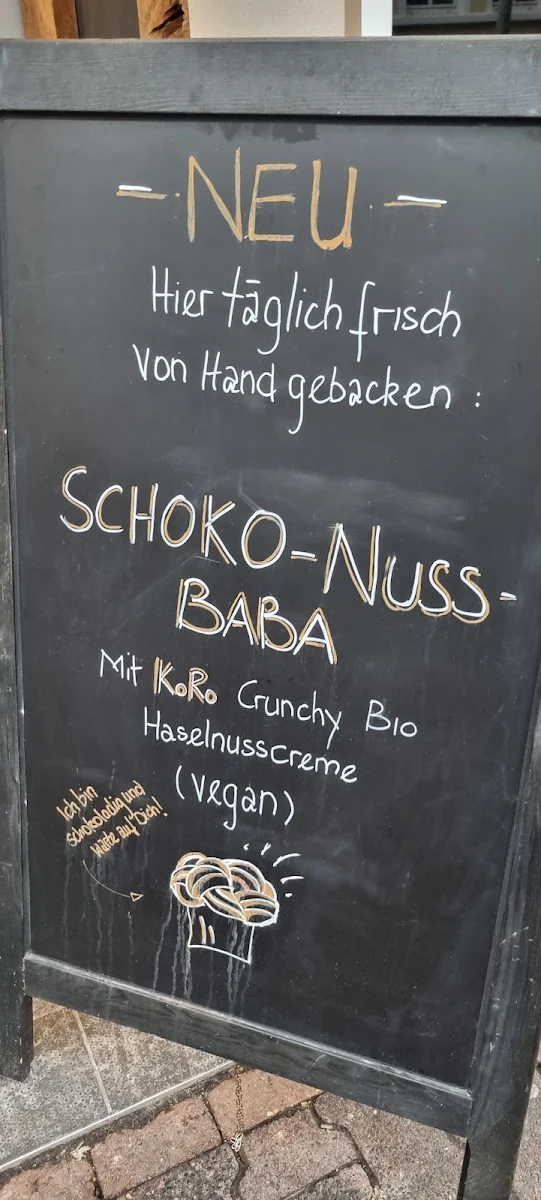 - NEU -
Hier täglich frisch
von Hand gebacken :
SCHOKO-NUSS-
BABA
Mit KoRo Crunchy Bio
Haselnusscreme
(vegan)
Ich bin
schokoladig und
warte auf Dich!